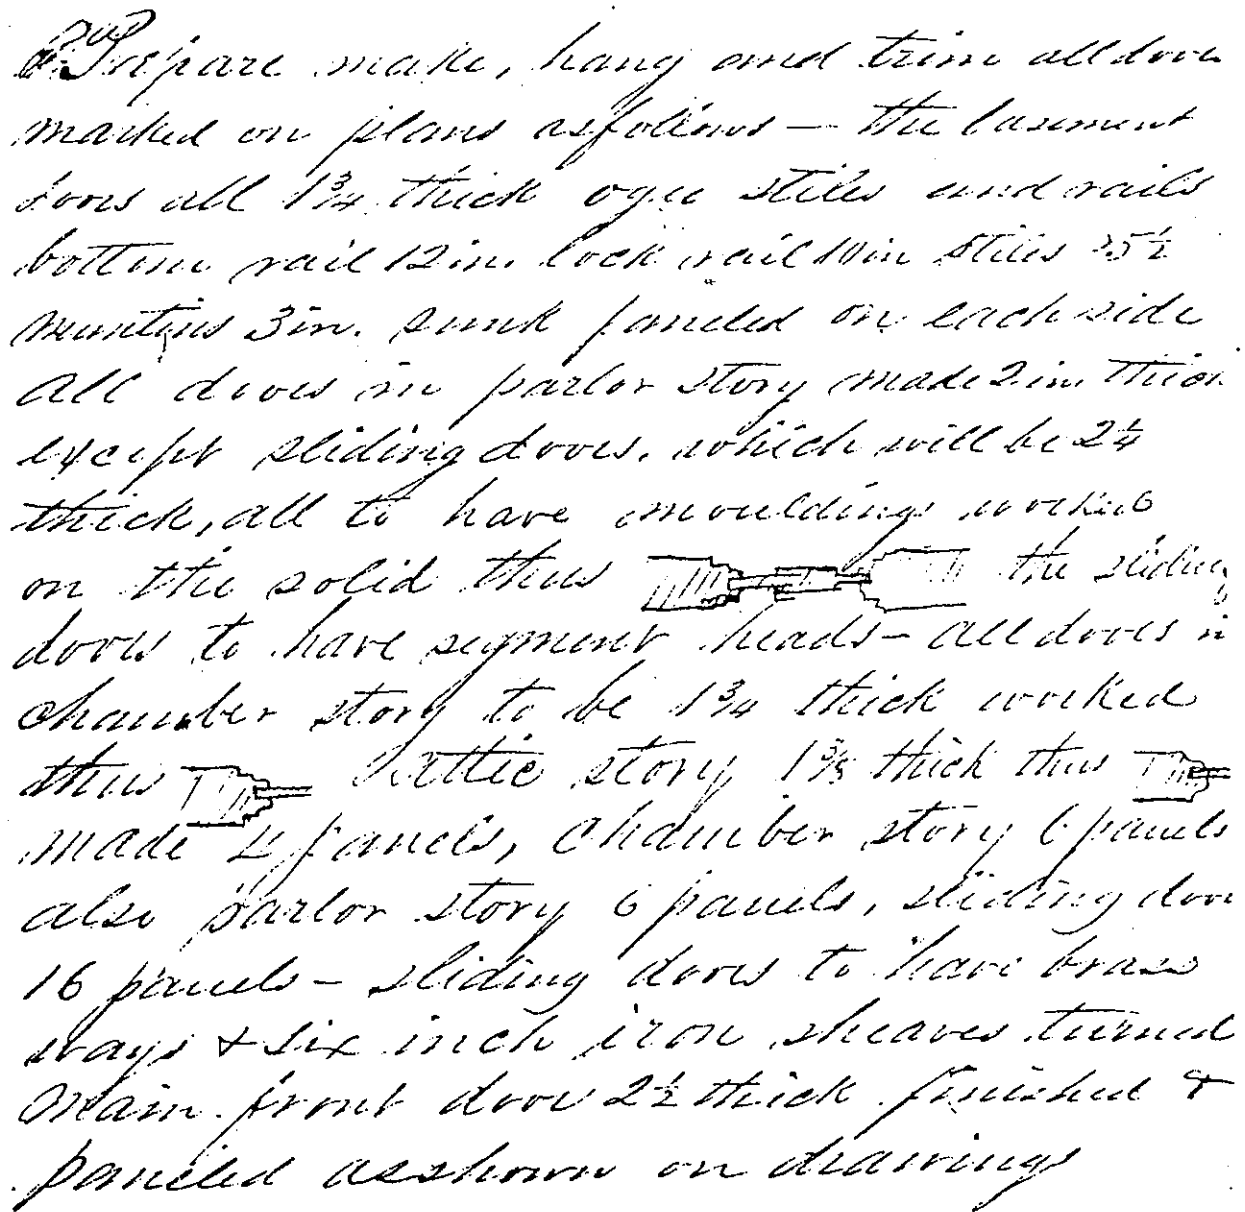 Prepare make, hang and trim all door
marked on plans as follows — the basement
doors all 1 3/4 thick ogee stiles and rails
bottom rail 12 in. lock rail 10 in stiles 5 1/2
muntins 3 in. sunk paneled on each side
all doors in parlor story made 2 in. thick
except sliding doors. which will be 2 1/4
thick, all to have mouldings worked
on the solid thus the sliding
doors to have segment heads – all doors in
chamber story to be 1 3/4 thick worked
thus Attic story 1 3/8 thick thus
made 4 panels, chamber story 6 panels
also parlor story 6 panels, sliding door
16 panels – sliding doors to have brass
ways & six inch iron sheaves turned
Main front door 2 1/2 thick finished &
paneled as shown on drawings